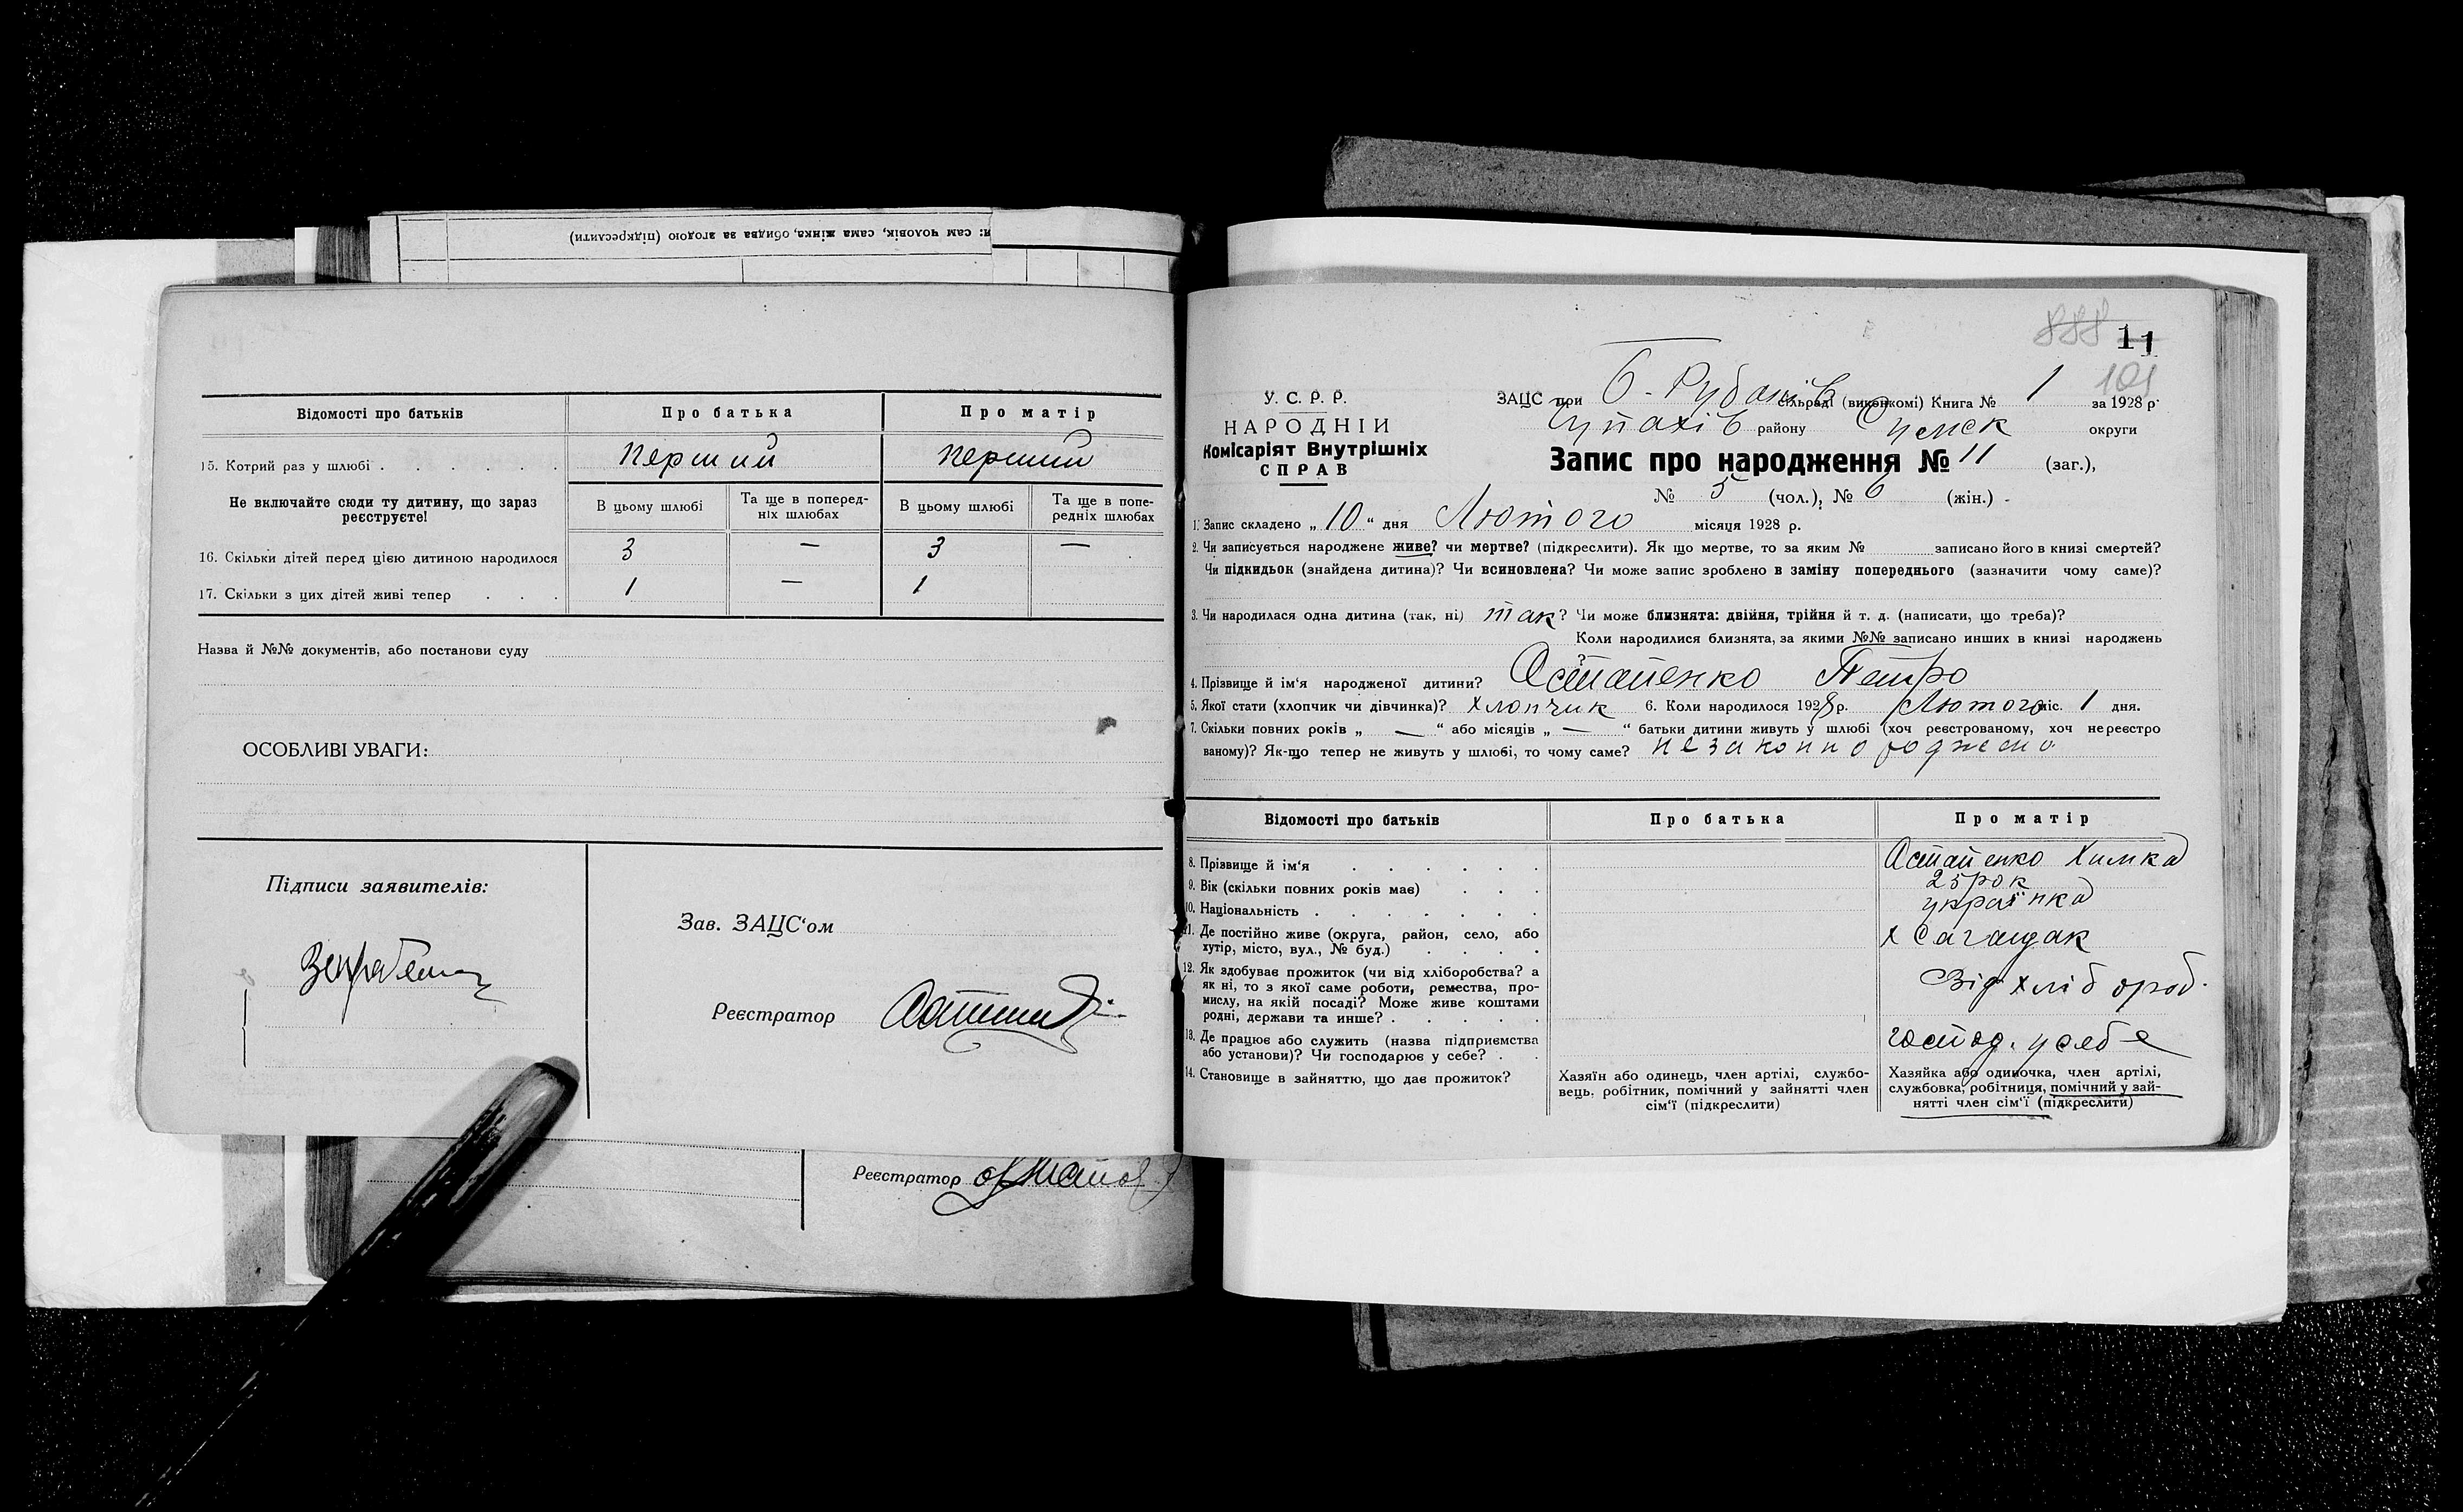 я: сам чоловік, сама жінка, обидва за згодою (підкреслити)
Відомості про батьків Про батька Про матір
15. Котрий раз у шлюбі . . . . . . . перший перший
Не включайте сюди ту дитину, що зараз реєструєте!
В цьому шлюбі Та ще в поперед-ніх шлюбах В цьому шлюбі Та ще в попе-редніх шлюбах
16. Скільки дітей перед цією дитиною народилося 3 — 3 —
17. Скільки з цих дітей живі тепер . . . 1 — 1
Назва й №№ документів, або постанови суду
ОСОБЛИВІ УВАГИ:
Підписи заявителів:
Зав. ЗАЦС'ом
Реєстратор
Реєстратор
888 11
101
У. С. Р. Р.
НАРОДНІЙ
Комісаріят Внутрішніх
СПРАВ
ЗАЦС при Б-Рубанів сільраді (виконкомі) Книга № 1 за 1928 р.
району Сумськ округи
Запис про народження № 11 (заг.),
№ 5 (чол.), № 6 (жін.)
1. Запис складено „ 10 “ дня Лютого місяця 1928 р.
2. Чи записується народжене живе? чи мертве? (підкреслити). Як що мертве, то за яким № записано його в книзі смертей?
Чи підкидьок (знайдена дитина)? Чи всиновлена? Чи може запис зроблено в заміну попереднього (зазначити чому саме)?
3. Чи народилася одна дитина (так, ні) так? Чи може близнята: двійня, трійня й т. д. (написати, що треба)?
Коли народилися близнята, за якими №№ записано инших в книзі народжень
?
4. Прізвище й ім'я народженої дитини? Остапенко Петро
5. Якої стати (хлопчик чи дівчинка)? Хлопчик 6. Коли народилося 1928 р. Лютого міс. 1 дня.
7. Скільки повних років „ — “ або місяців „ — “ батьки дитини живуть у шлюбі (хоч реєстрованому, хоч нереєстро
ваному)? Як-що тепер не живуть у шлюбі, то чому саме? незаконнороджено
Відомості про батьків Про батька Про матір
8. Прізвище й ім'я . . . . . . Остапенко Химка
9. Вік (скільки повних років має) . . . 25 рок
10. Національність . . . . . . . українка
11. Де постійно живе (округа, район, село, або
хутір, місто, вул., № буд.) . . . . х Сагайдак
12. Як здобуває прожиток (чи від хліборобства? а
як ні, то з якої саме роботи, ремества, про-
мислу, на якій посаді? Може живе коштами
родні, держави та инше? . . . . . Від хлібороб.
13. Де працює або служить (назва підприємства
або установи)? Чи господарює у себе? . . господ. у себе
14. Становище в зайняттю, що дає прожиток?
Хазяїн або одинець, член артілі, службо-
вець, робітник, помічний у зайнятті член
сім'ї (підкреслити)
Хазяйка або одиночка, член артілі,
службовка, робітниця, помічний у зай-
нятті член сім'ї (підкреслити)